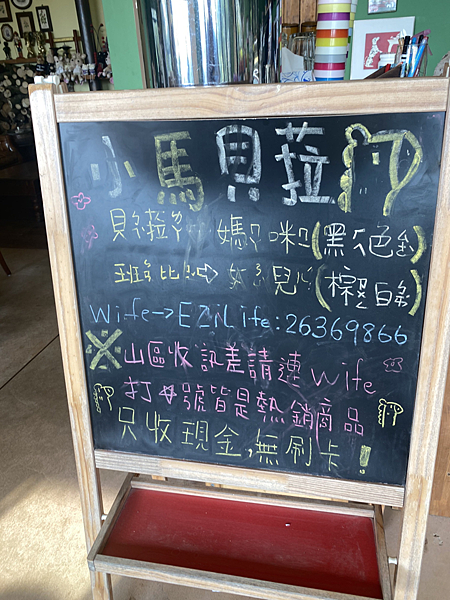 小馬貝菈
貝菈 媽咪(黑色)
班比⇨女兒(棕白)
Wife→EZiLife:26369866
※山區收訊差請連wife
打☆號皆是熱銷商品
只收現金,無刷卡!